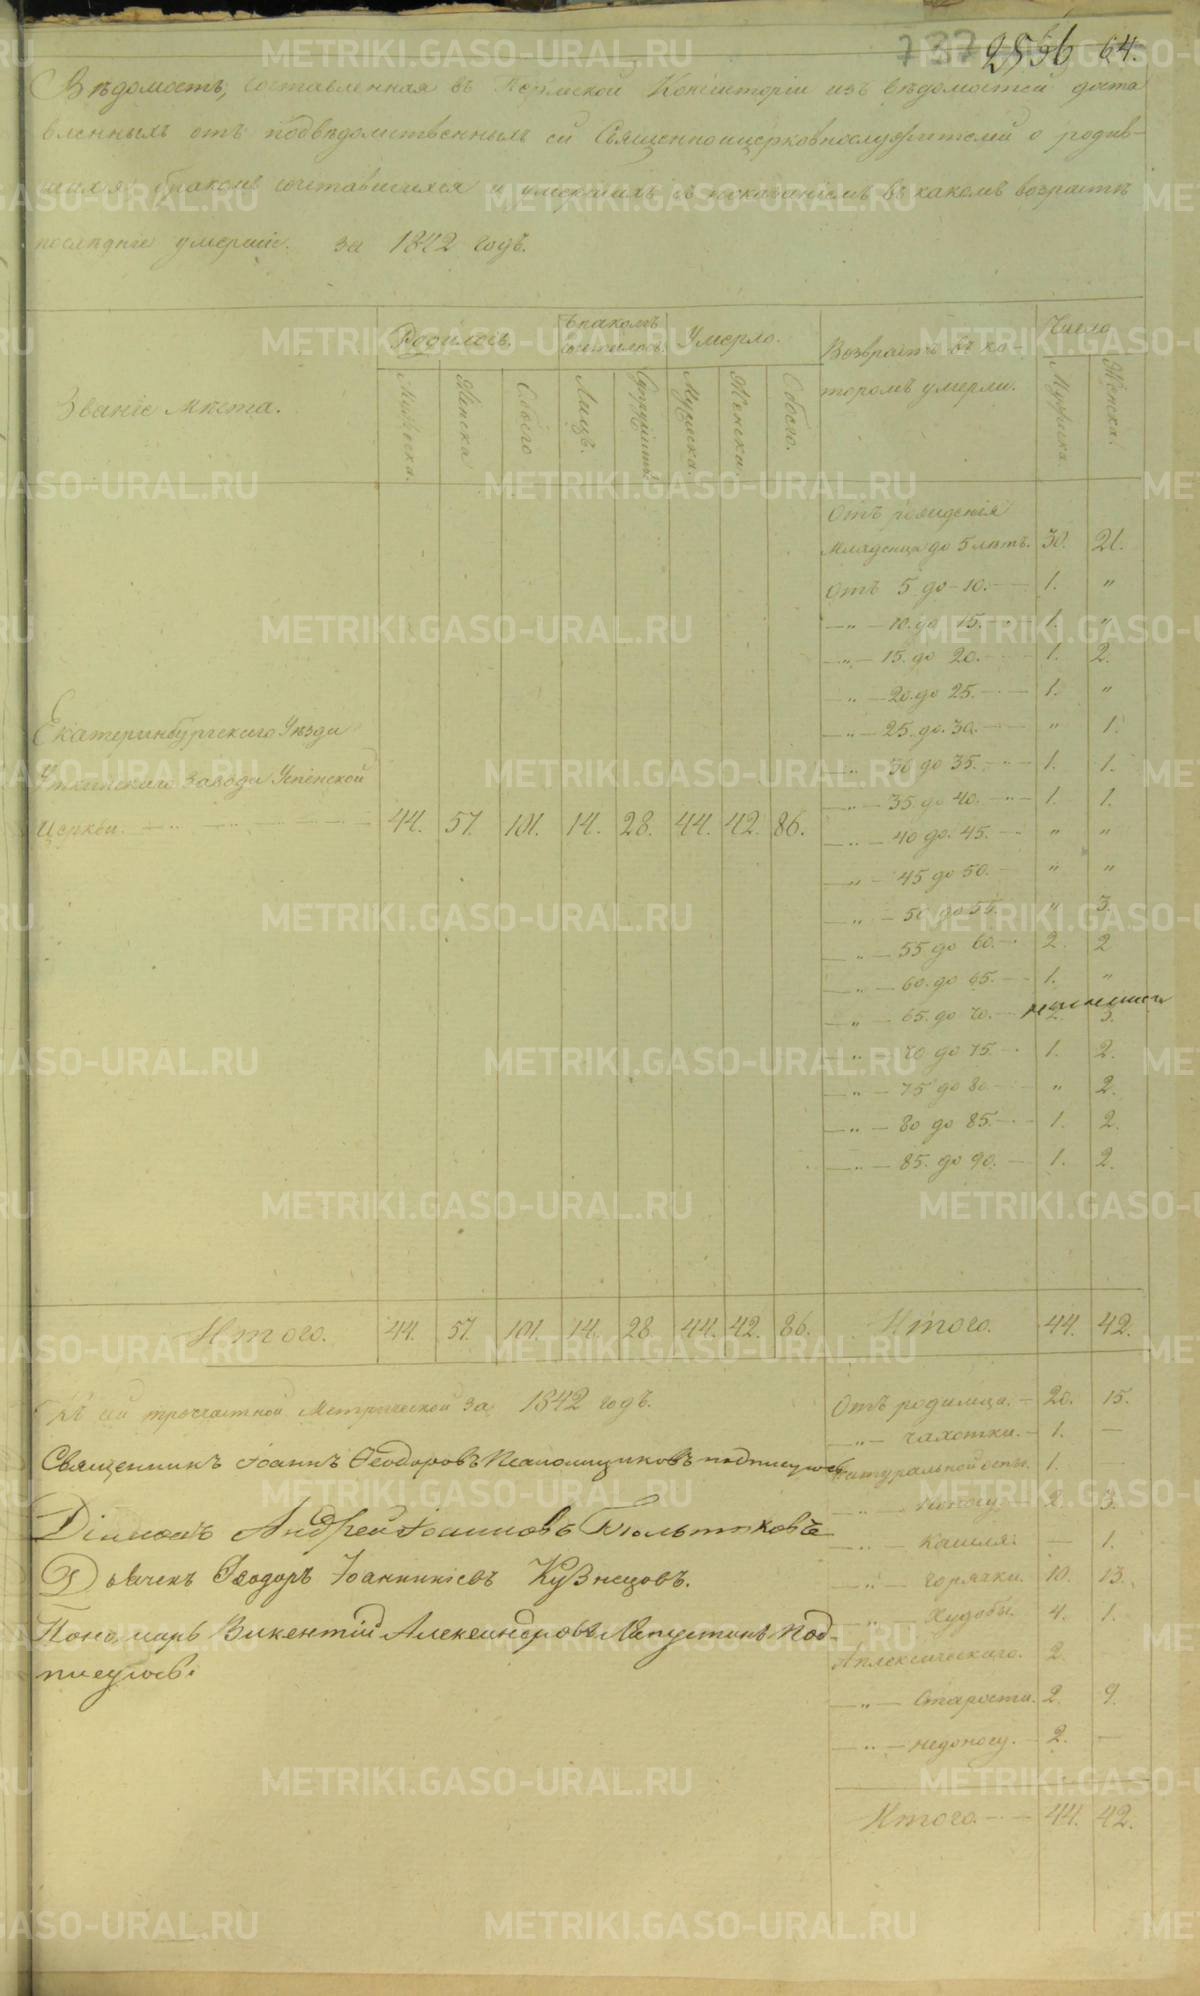 737 2556 64.
Вѣдомость, составленная въ Пермской Консисторіи изъ вѣдомостей доста
вленныхъ отъ подвѣдомственныхъ ей Священноицерковнослужителей о родив-
шихся, бракомъ сочетавшихся и умершихъ съ показаніемъ въ какомъ возрастѣ
послѣдніе умерли. за 1842 годъ.
Званіе мѣста.
Родилось.
Мужеска.
Женска
Обоего
Бракомъ сочетались.
Лицъ.
Супружествъ
Умерло.
Мужеска.
Женска.
Обоего.
Возврастъ въ ко-
торомъ умерли.
Число
Мужеска.
Женска.
Екатеринбургскаго Уѣзда
Уткинскаго завода Успенской
Церкви. 44. 57. 101. 14. 28. 44. 42. 86.
Отъ рожденія
Младенца до 5 лѣтъ. 30. 21.
Отъ 5 до 10. — 1. "
—"— 10. до 15. — 1. "
—"— 15. до 20. — 1. 2.
—"— 20. до 25. — 1. "
—"— 25. до 30. — " 1.
—"— 30 до 35. — 1. 1.
—"— 35. до 40. — 1. 1.
—"— 40 до 45. — " "
—"— 45 до 50. — " "
—"— 50 до 55. — " 3.
—"— 55 до 60. — 2. 2
—"— 60. до 65. — 1. "
—"— 65. до 70. — 2. 3.
—"— 70 до 75. — 1. 2.
—"— 75 до 80 — " 2.
—"— 80 до 85. — 1. 2.
—"— 85. до 90. — 1. 2.
Итого. 44. 57. 101. 14. 28. 44. 42. 86. Итого. 44. 42.
Къ сей троечастной Метрической за 1842 годъ.
Священникъ Іоаннъ Ѳеодоровъ Псаломщиковъ подписуюсь
Діаконъ Андрей Іоанновъ
Дьячекъ Ѳеодоръ Іоанникіевъ Кузнецовъ.
Пономарь Викентій Александровъ Лапустинъ под-
писуюсь.
Отъ родимца. — 20. 15.
—"— чахотки. — 1. —
Натуральной оспы. 1. —
—"— Поносу. — 2. 3.
—"— Кашля. — 1.
—"— горячки. 10. 13.
—"— Худобы. 4. 1.
Аплексическаго. 2. —
—"— Старости. 2. 9.
—"— недоносу. — 2. —
Итого. — 44. 42.
METRIKI.GASO-URAL.RU